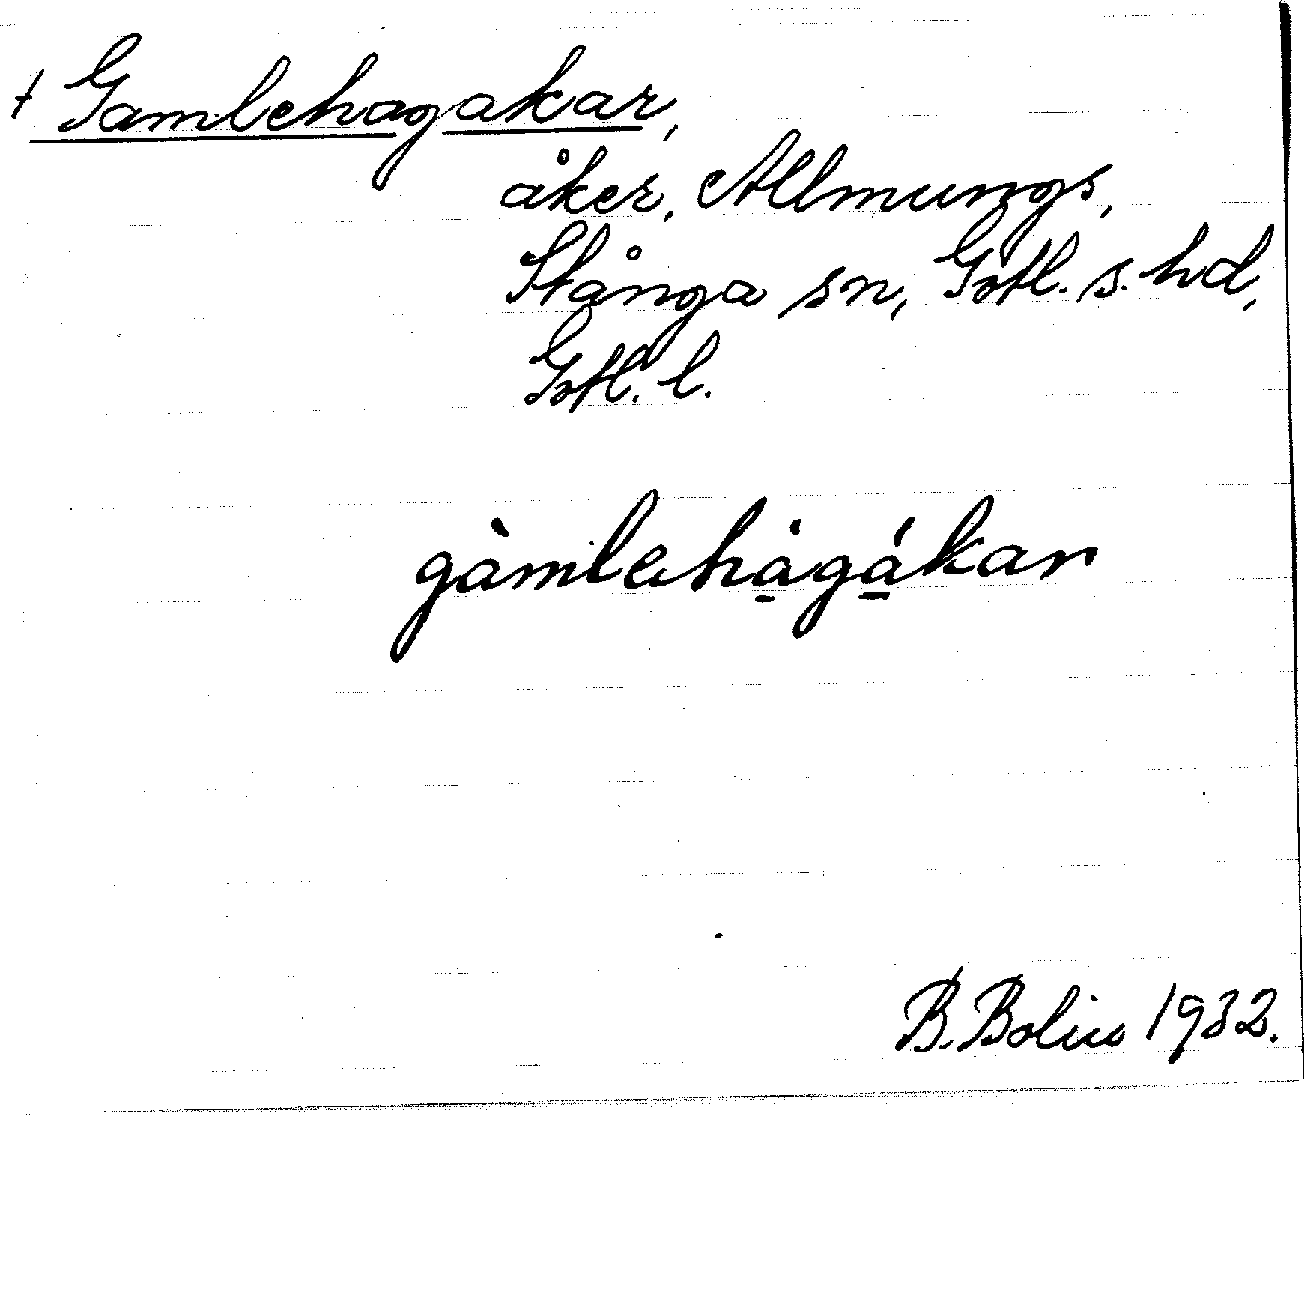 + Gamlehagakar,
åker, Allmungs,
Stånga sn, Gotl. s. hd,
Gotl. l.
gàmlehà̱gá̱kar
B. Bolin 1932.